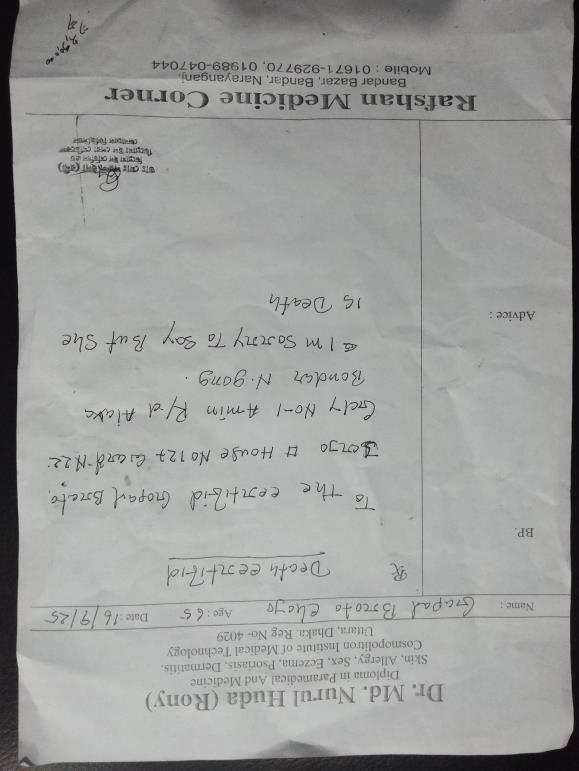 Dr. Md. Nurul Huda (Rony)
Diploma in Paramedical And Medicine
Skin, Allergy, Sex, Eczema, Psoriasis, Dermatitis.
Cosmopolitron Institute of Medical Technology
Uttara, Dhaka. Reg No- 4029
Name : Gopal Broto Age : 65 Date : 16/9/25
Rx Death certifid
BP.
To the certifid Gopal Broto
House No 127 Ward N. 22
Goly No-1 Amin R/d Alaka
Bondar N. gong.
I m Sorry To Say But She
is Death
Advice :
Rafshan Medicine Corner
Bandar Bazar, Bandar, Narayanganj.
Mobile : 01671-929770, 01989-047044